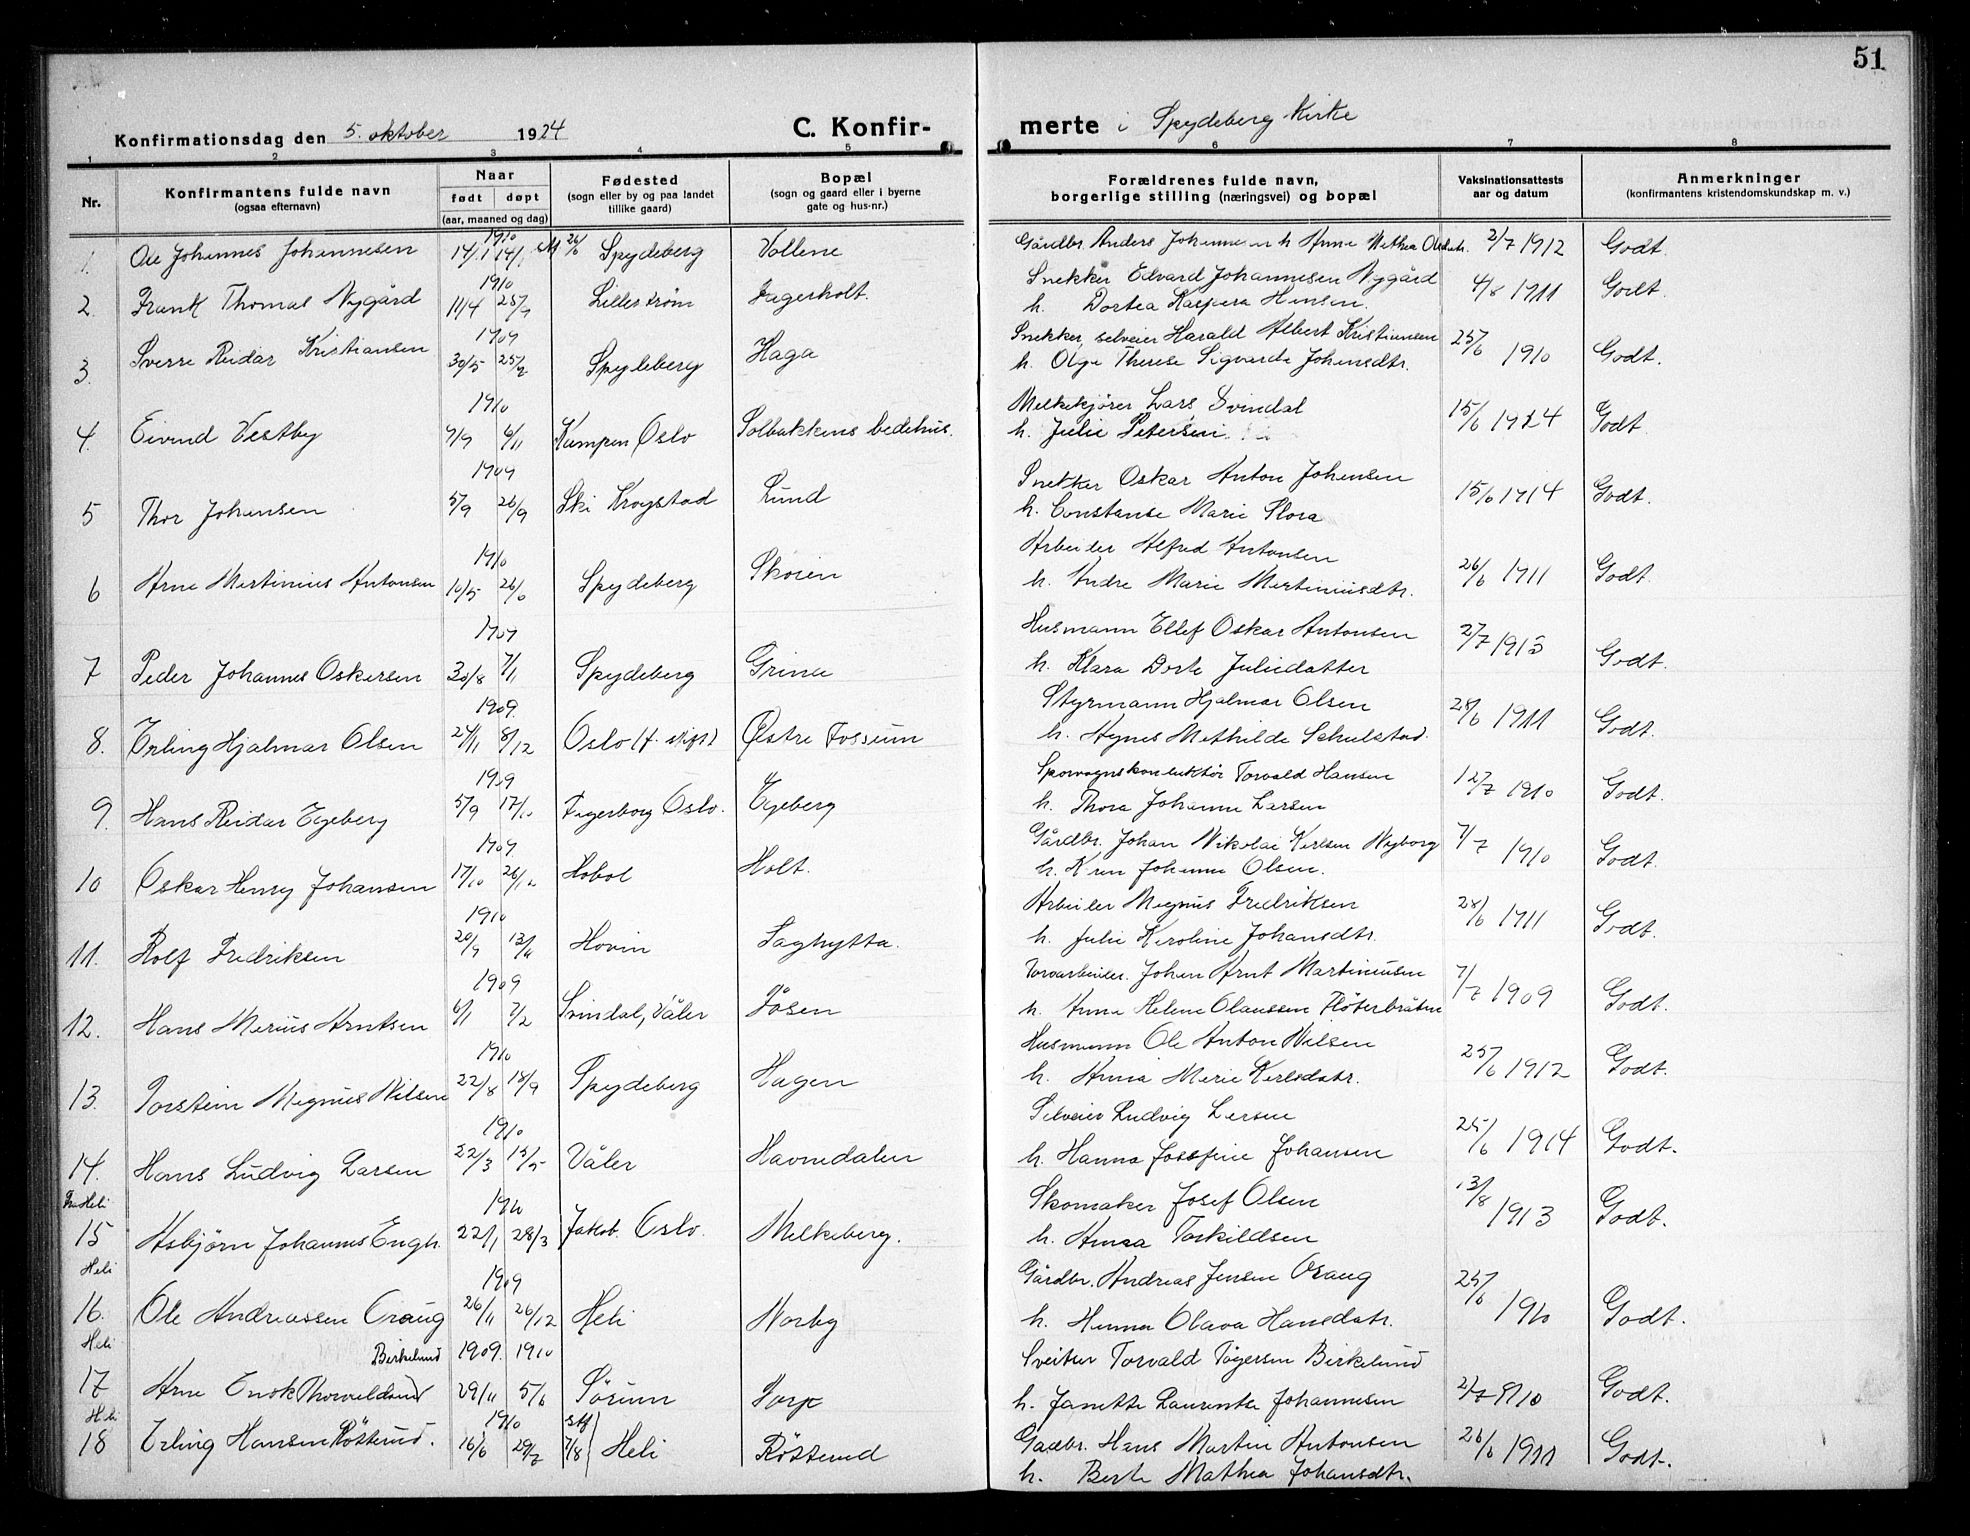 51
Konfirmationsdag den 5. oktober 1924 C. Konfir-
merte i Spydeberg Kirke
1 2 3 4 5 6 7 8
Nr.
Konfirmantens fulde navn
(ogsaa efternavn)
Naar
født døpt
(aar, maaned og dag)
Fødested
(sogn eller by og paa landet
tillike gaard)
Bopæl
(sogn og gaard eller i byerne
gate og hus-nr.)
Forældrenes fulde navn,
borgerlige stilling (næringsvei) og bopæl
Vaksinationsattests
aar og datum
Anmerkninger
(konfirmantens kristendomskundskap m. v.)
1910
1. Ole Johannes Johannesen 14/1 Spydeberg Vollene Gårdbr. Anders h. Anne Mathea 2/7 1912 Godt.
1910
2. Frank Thomas Nygård 11/4 25/7 Lillestrøm Jagerholt. Snekker Edvard Johannesen Nygård 4/8 1911 Godt.
h. Dortea Kaspara Hansen
1909
3. Sverre Reidar Kristiansen 30/5 25/7 Spydeberg Haga Snekker, selveier Harald Albert Kristiansen 25/6 1910 Godt.
h. Olga Therese Sigvarda Johansdtr.
1910
4. Eivind Vestby 9/9 6/11 Kampen Oslo Solbakkens bedehus. Melkekjører Lars Svindal 15/6 1924 Godt.
h. Julie Petersen
1909
5 Thor Johansen 5/9 26/9 Ski Krogstad Lund Snekker Oskar Anton Johansen 15/6 1914 Godt.
h. Constanse Marie Flora
1910
6 Arne Martinius Antonsen 10/5 26/6 Spydeberg Skøien Arbeider Alfred Antonsen 26/6 1911 Godt.
h. Andre Marie Martiniusdtr.
1909
7 Peder Johannes Oskarsen 30/8 7/11 Spydeberg Grina Husmann Ellef Oskar Antonsen 2/7 1913 Godt.
h. Klara Dorte Juliedatter
1909.
8. Erling Hjalmar Olsen 24/11 8/12 Oslo Østre Fossum Styrmann Hjalmar Olsen 28/6 1911 Godt.
h. Agnes Mathilde Schulstad.
1909
9. Hans Reidar Egeberg 5/9 17/10 Fagerborg Oslo. Egeberg Sporvognskonduktør Torvald Hansen 12/7 1910 Godt.
h. Thora Johanne Larsen
1909
10 Oskar Henry Johansen 17/10 26/12 Hobøl Holt. Gårdbr. Johan Nikolai Karlsen Nyborg 7/7 1910 Godt.
h. Karen Johanne Olsen.
1910
11. Rolf Fredriksen 20/9 13/11 Hovin Saghytta. Arbeider Magnus Fredriksen 28/6 1911 Godt.
h. Julie Karoline Johansdtr.
1909
12. Hans Marius Arntsen 6/1 7/2 Svindal, Våler Fosen Torvarbeider. Johan Arnt Martiniusen 7/7 1909 Godt.
h. Anna Helene Olaussen Fløterbråten
1910
13. Torstein Magnus Nilsen 22/8 18/9 Spydeberg Hagen Husmann Ole Anton Nilsen 25/6 1912 Godt.
h. Anna Marie Karlsdatr.
1910
14. Hans Ludvig Larsen 22/3 15/5 Våler Havnedalen Selveier Ludvig Larsen 25/6 1914 Godt.
h. Hanna Josefine Johansen
Heli 1910
15 Asbjörn Johannes Engh. 22/1 28/3 Jakob. Oslo. Melkeberg. Skomaker Josef Olsen 13/8 1913 Godt.
h. Anna Torkildsen
Heli 1909
16. Ole Andreassen Oraug 26/11 26/12 Heli Norby Gårdbr. Andreas Jensen Oraug 25/6 1910 Godt.
h. Hanna Olava Hansdatr.
Heli Birkelund 1909. 1910
17 Arne Enok Thorvaldsen 29/11 5/6 Sørum Torp Sveitser Torvald Tøgersen Birkelund 2/7 1910 Godt.
h. Janette Laurentse Johannesen
Heli 1910
18 Erling Hansen Røstrud. 16/6 29/7 7/8 Heli Røsterud Gårdbr. Hans Martin Antonsen 26/6 1911 Godt.
h. Berte Mathea Johansdtr.